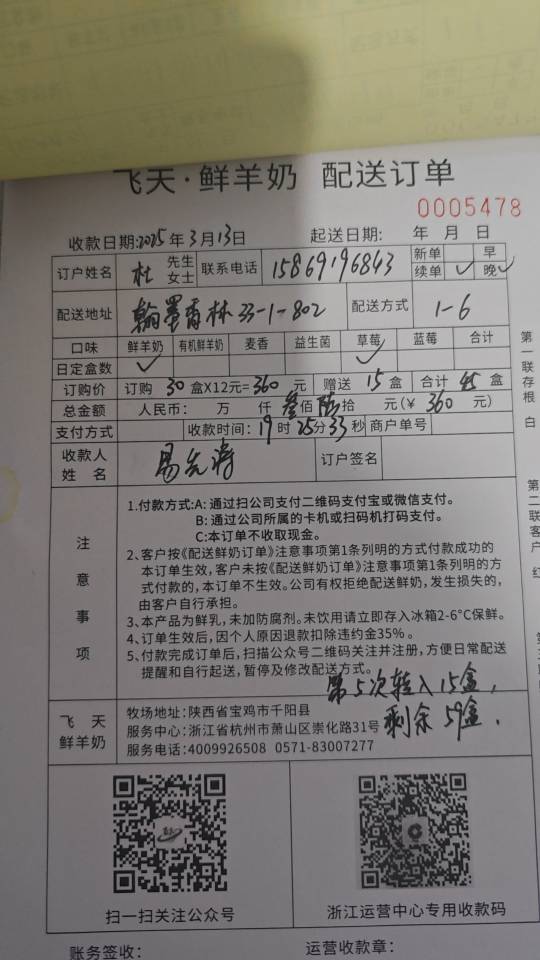 飞天·鲜羊奶 配送订单
0005478
收款日期:2025年3月13日 起送日期: 年 月 日
订户姓名 杜 先生 女士 联系电话 15869196843 新单 续单 ✓ 早 晚 ✓
配送地址 翰墨香林33-1-802 配送方式 1-6
口味 鲜羊奶 有机鲜羊奶 麦香 益生菌 草莓 蓝莓 合计
日定盒数 ✓ ✓
订购价 订购 30 盒X12元=360 元 赠送 15 盒 合计 45 盒
总金额 人民币: 万 仟 叁佰陆拾 元(¥ 360 元)
支付方式 收款时间: 19时25分33秒 商户单号
收款人姓名 订户签名
注意事项
1.付款方式:A: 通过扫公司支付二维码支付宝或微信支付。
B: 通过公司所属的卡机或扫码机打码支付。
C:本订单不收取现金。
2、客户按《配送鲜奶订单》注意事项第1条列明的方式付款成功的
本订单生效,客户未按《配送鲜奶订单》注意事项第1条列明的方
式付款的,本订单不生效。公司有权拒绝配送鲜奶,发生损失的,
由客户自行承担。
3、本产品为鲜乳,未加防腐剂。未饮用请立即存入冰箱2-6°C保鲜。
4、订单生效后,因个人原因退款扣除违约金35%。
5、付款完成订单后,扫描公众号二维码关注并注册,方便日常配送
提醒和自行起送,暂停及修改配送方式。
第5次转入15盒,
剩余59盒.
飞天鲜羊奶
牧场地址:陕西省宝鸡市千阳县
服务中心:浙江省杭州市萧山区崇化路31号
服务电话:4009926508 0571-83007277
扫一扫关注公众号 浙江运营中心专用收款码
账务签收: 运营收款章:
第一联存根 白
第二联客户 红
第